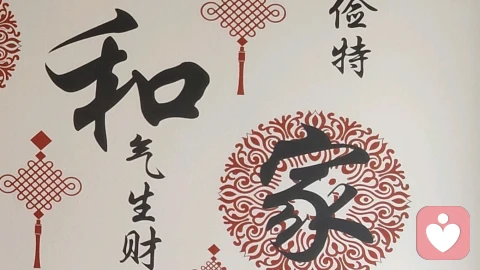 和
气生财
家
俭特